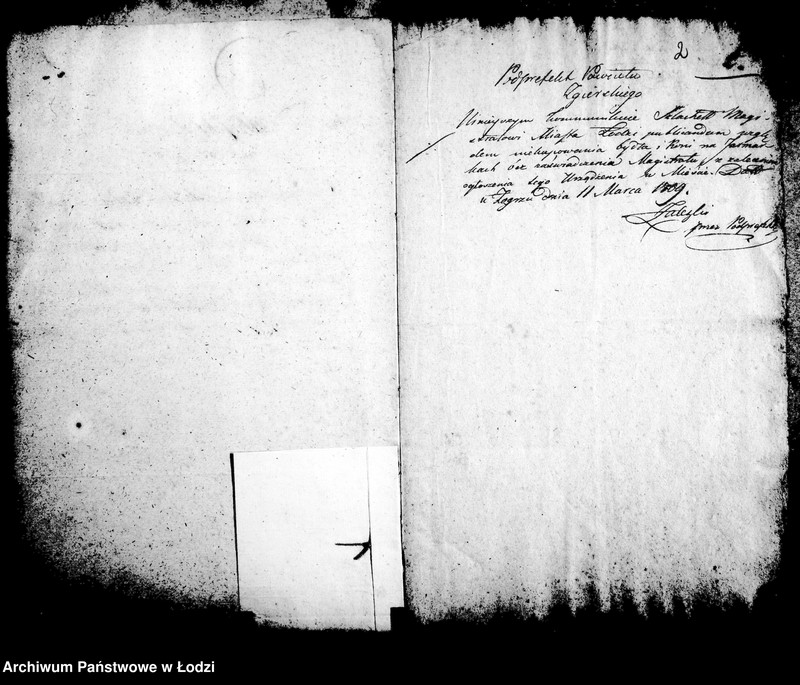 2
Podprefekt Powiatu
Zgierskiego
Kommunikuie Szlachett Magi-
stratowi Miasta Łodzi publicandum wzglę
dem niekupowania bydła i koni na Jarmar
kach bez zaświadczenia Magistratu, z zaleceniem
ogłoszenia tego Urządzenia w Mieście. Datt
w Zgierzu dnia 11 Marca 1809.
Podprefekt
Archiwum Państwowe w Łodzi